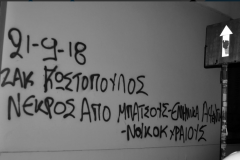 21-9-18
ΖΑΚ ΚΩΣΤΟΠΟΥΛΟΣ
ΝΕΚΡΟΣ ΑΠΟ ΜΠΑΤΣΟΥΣ-ΕΛΛΗΝΙΚΑ
-ΝΟΙΚΟΚΥΡΑΙΟΥΣ